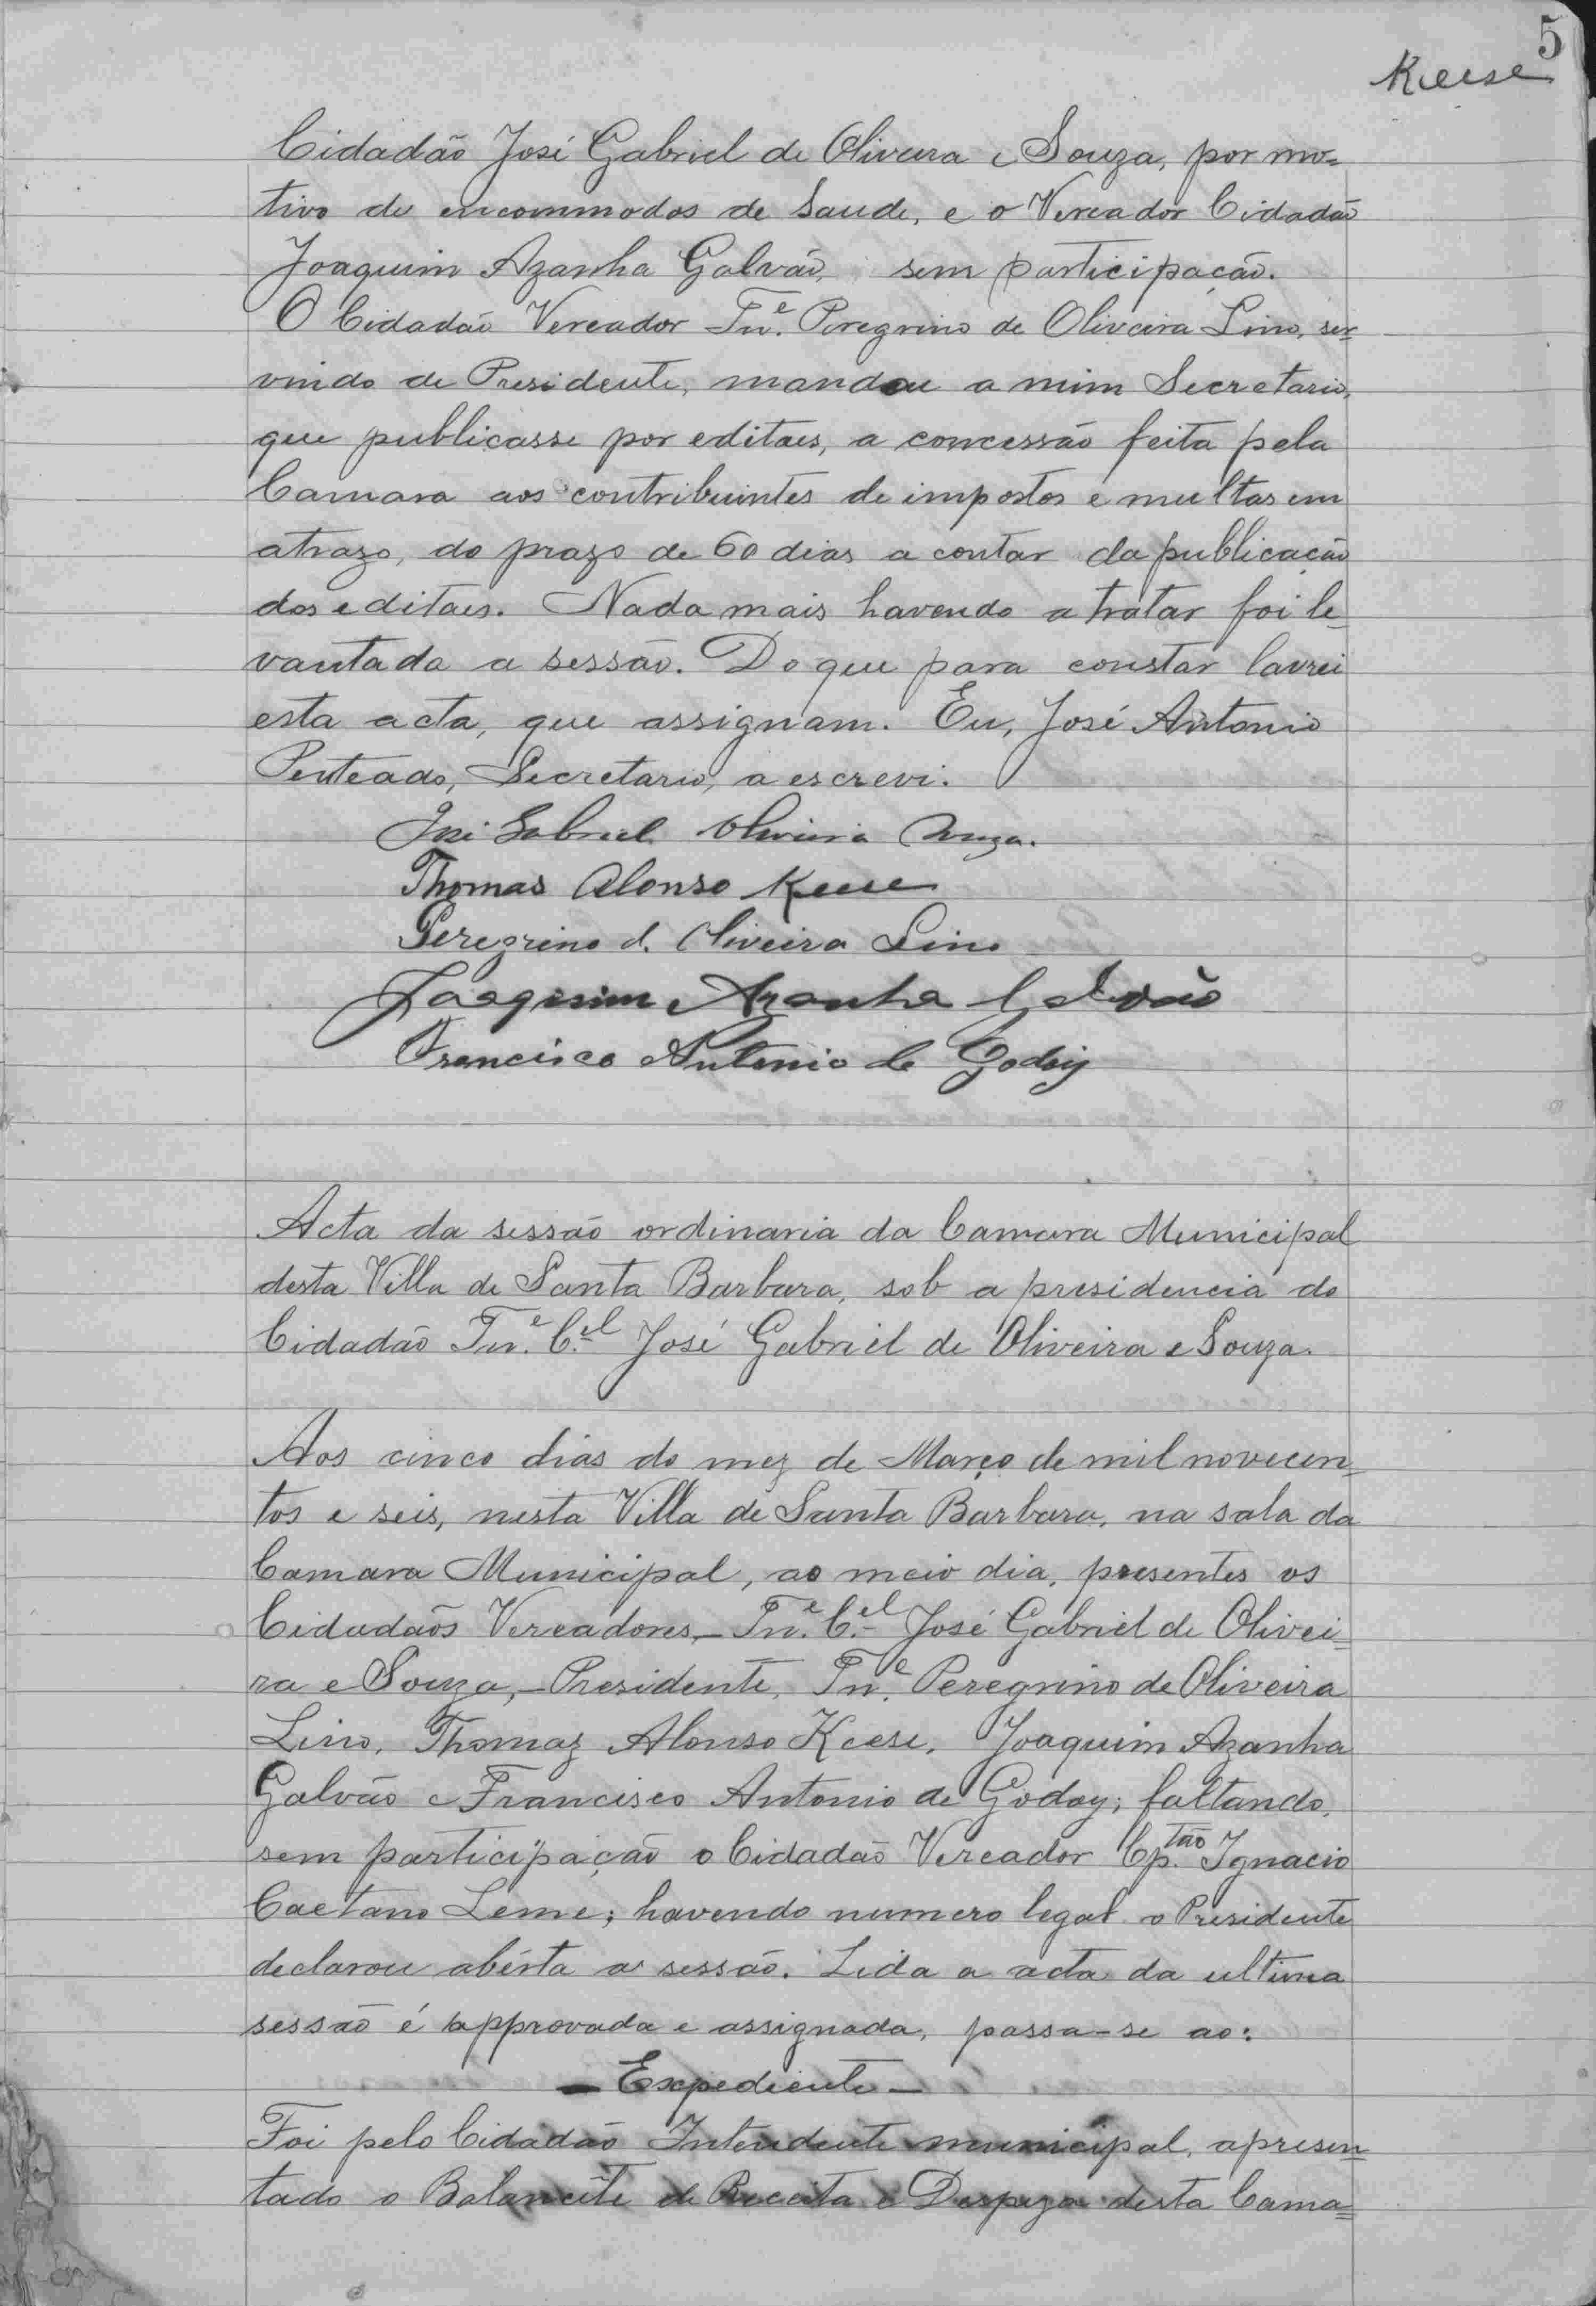 5
Keese
Cidadão José Gabriel de Oliveira e Souza, por mo=
tivo de encommodos de Saude, e o Vereador Cidadão
Joaquim Azanha Galvão, sem participação.
O Cidadão Vereador Tn.e Peregrino de Oliveira Lino, ser=
vindo de Presidente, mandou a mim Secretario,
que publicasse por editaes, a concessão feita pela
Camara aos contribuintes de impostos e multas em
atrazo, do prazo de 60 dias a contar da publicação
dos editaes. Nada mais havendo a tratar foi le=
vantada a sessão. Do que para constar lavrei
esta acta, que assignam. Eu, José Antonio
Penteado, Secretario, a escrevi.
José Gabriel Oliveira Souza.
Thomas Alonso Keese
Peregrino d. Oliveira Lino
Joaquim Azanha Galvão
Francisco Antonio de Godoy
Acta da sessão ordinaria da Camara Municipal
desta Villa de Santa Barbara, sob a presidencia do
Cidadão Tn.e C.el José Gabriel de Oliveira e Souza.
Aos cinco dias do mez de Março de mil novecen=
tos e seis, nesta Villa de Santa Barbara, na sala da
Camara Municipal, ao meio dia, presentes os
Cidadãos Vereadores,- Tn.e C.el José Gabriel de Olivei=
ra e Souza,- Presidente, Tn.e Peregrino de Oliveira
Lino, Thomaz Alonso Keese, Joaquim Azanha
Galvão e Francisco Antonio de Godoy; faltando,
sem participação o Cidadão Vereador Cp.tão Ignacio
Caetano Leme; havendo numero legal o Presidente
declarou abérta a sessão. Lida a acta da ultima
sessão é approvada e assignada, passa-se ao:
- Expediente -
Foi pelo Cidadão Intendente municipal, apresen=
tado o Balancête de Receita e Despeza desta Cama=